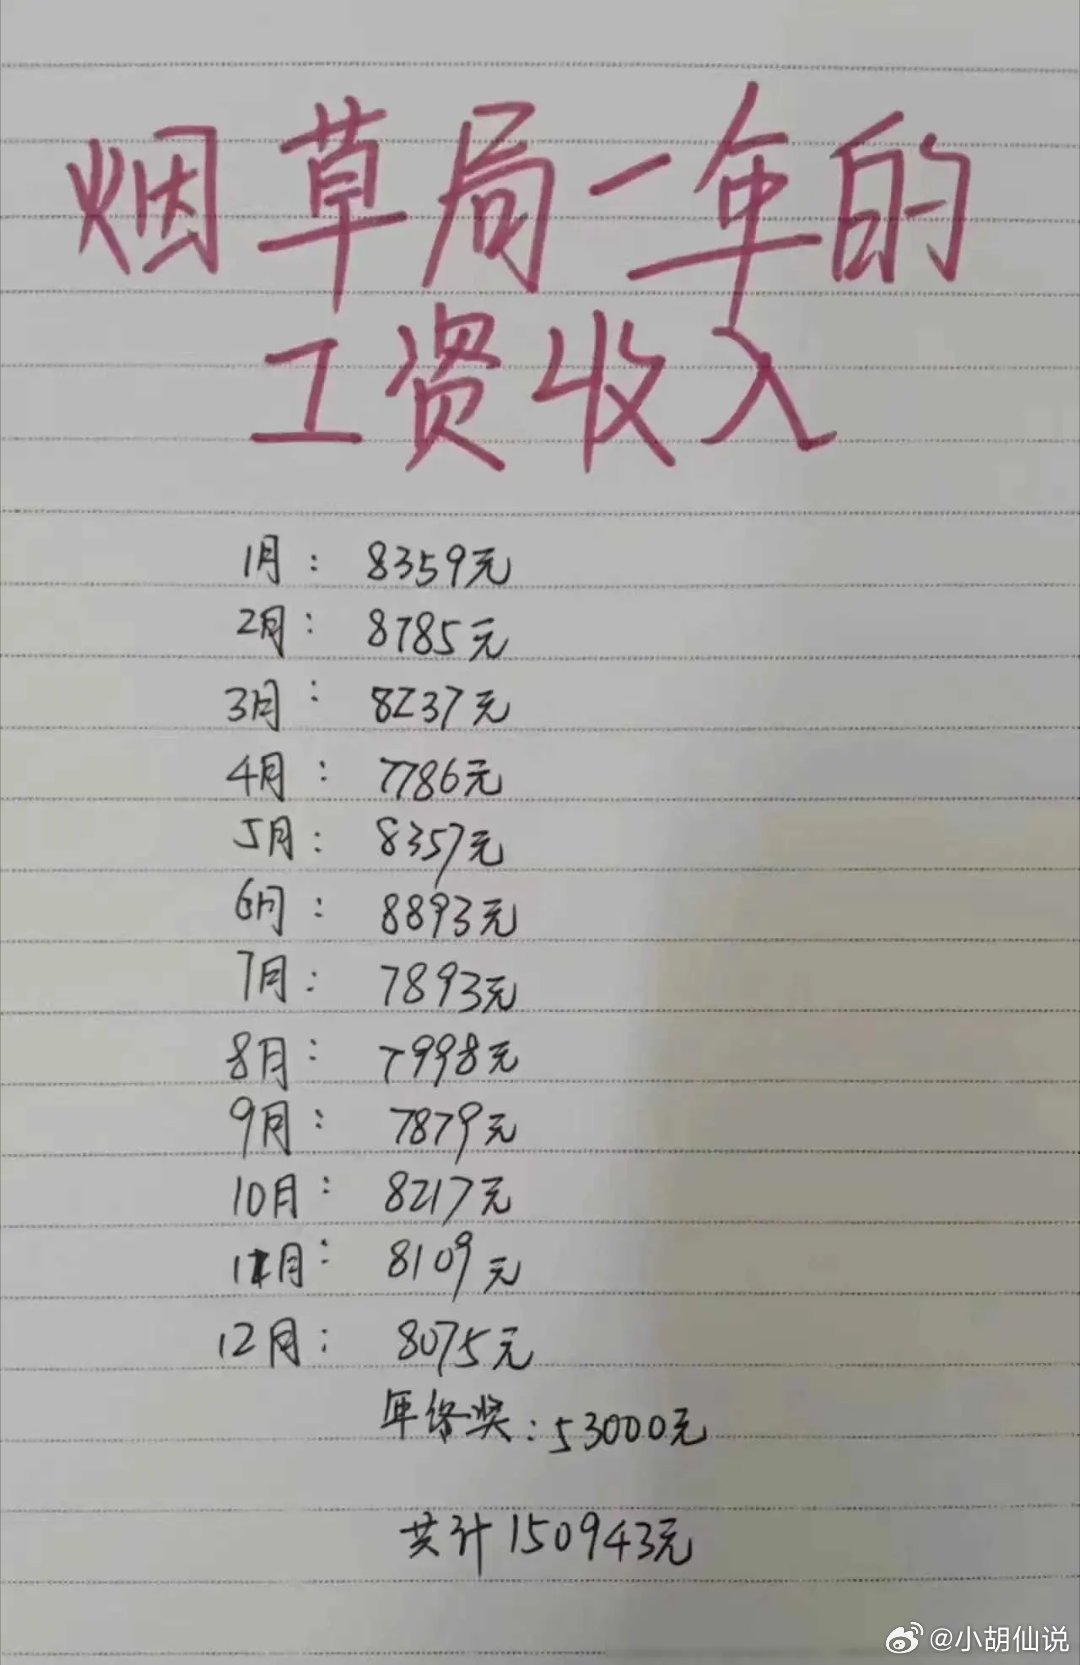 烟草局一年的
工资收入
1月: 8359元
2月: 8785元
3月: 8237元
4月: 7786元
5月: 8357元
6月: 8893元
7月: 7893元
8月: 7998元
9月: 7879元
10月: 8217元
11月: 8109元
12月: 8075元
年终奖: 53000元
共计150943元
@小胡仙说